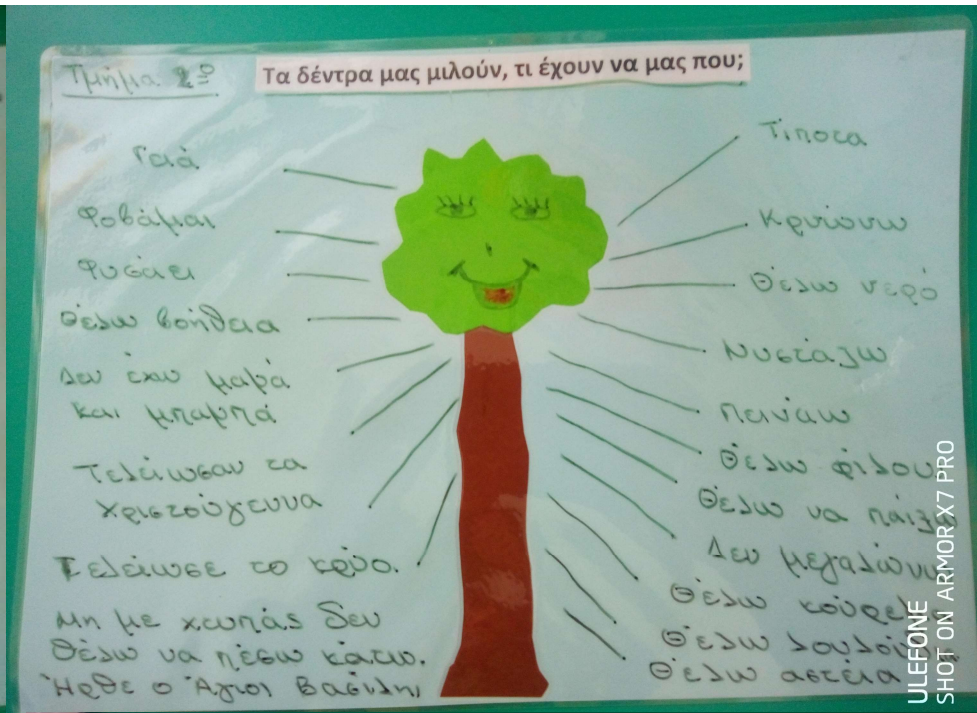 Τμήμα 2º
Τα δέντρα μας μιλούν, τι έχουν να μας που;
Γειά
Φοβάμαι
Φυσάει
Θέλω βοήθεια
Δεν έχω μαμά
και μπαμπά
Τελείωσαν τα
Χριστούγεννα
Τελείωσε το κρύο.
Μη με χτυπάς δεν
θέλω να πέσω κάτω.
Ήρθε ο Άγιος Βασίλης
Τίποτα
Κρυώνω
Θέλω νερό
Νυστάζω
Πεινάω
Θέλω φίλου
Θέλω να παίξω
Δεν μεγαλώνω
Θέλω
Θέλω
Θέλω αστεία
ULEFONE
SHOT ON ARMOR X7 PRO